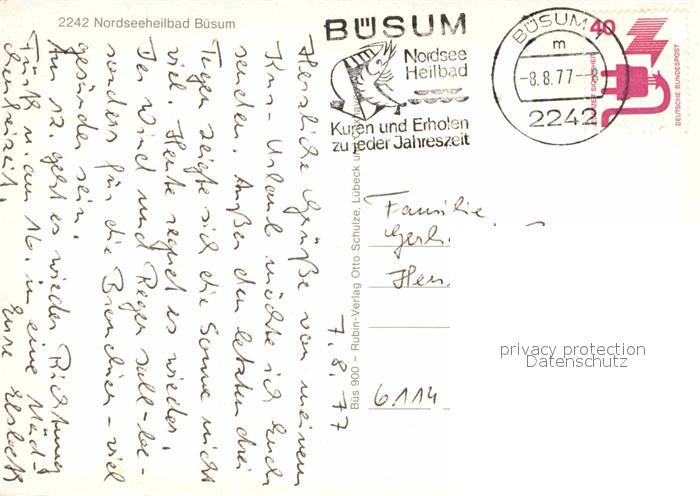 2242 Nordseeheilbad Büsum
BÜSUM
Nordsee
Heilbad
Kuren und Erholen
zu jeder Jahreszeit
BÜSUM
m
-8.8.77-
2242
40
JEDERZEIT SICHERHEIT
DEUTSCHE BUNDESPOST
7.8.77
Herzliche Grüße von meinem
Kur-Urlaub möchte ich Euch
senden. Außer den letzten drei
Tagen zeigte sich die Sonne nicht
viel. Heute regnet es wieder.
Der Wind und Regen soll be-
sonders für die Bronchien viel
gesünder sein.
Am 12. geht es wieder Richtung
u. am 16. in eine
Eure
Büs 900 – Rubin-Verlag Otto Schulze, Lübeck
Familie
Gerh.
6114
privacy protection
Datenschutz